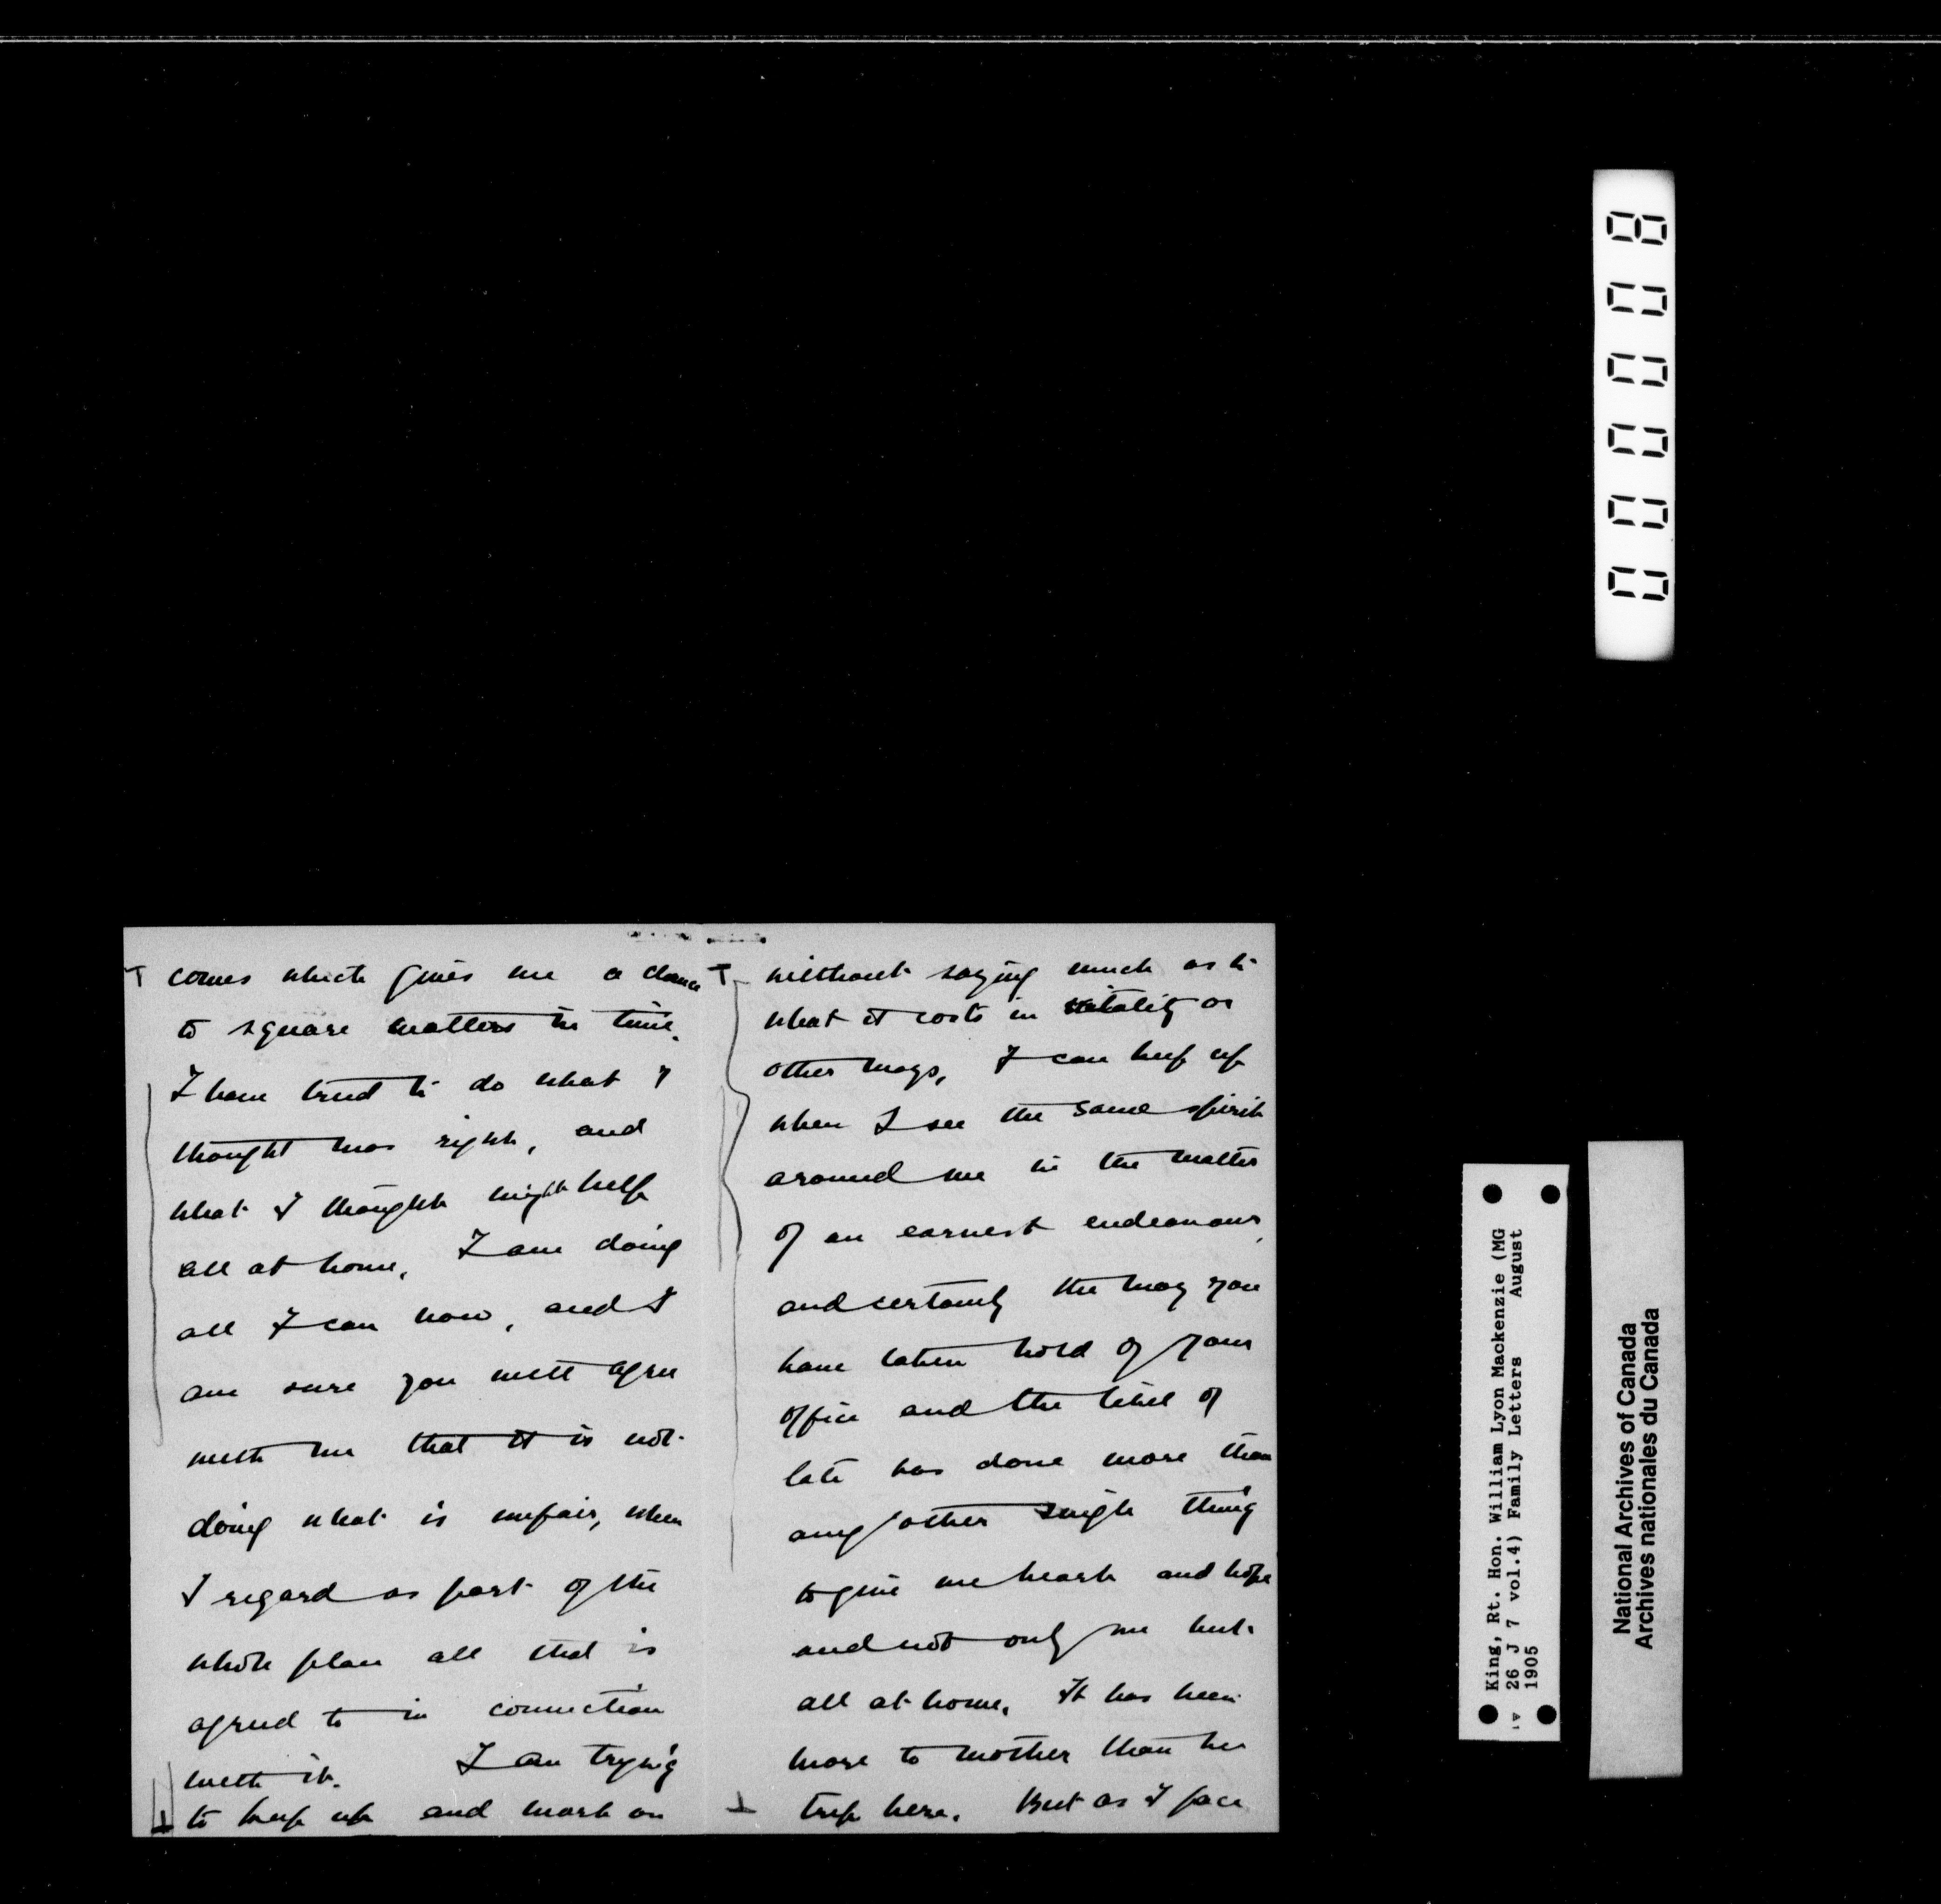 comes which gives me a chance
to square matters in time.
I have tried to do what I
thought was right, and
what I thought might help
all at home. I am doing
all I can now, and I
am sure you will agree
with me that it is not
doing what is unfair, when
I regard as part of the
whole plan all that is
agreed to in connection
with it. I am trying
to keep up and work on
without saying much as to
what it costs in vitality or
other ways. I can keep up
when I see the same spirit
around me in the matter
of an earnest endeavour,
and certainly the way you
have taken hold of your
office and the like of
late has done more than
any other single thing
to give me heart and hope
and not only me but
all at home. It has been
more to mother than her
trip here. But as I face
0000008
King, Rt. Hon. William Lyon Mackenzie (MG
26 J 7 vol.4) Family Letters August
1905
National Archives of Canada
Archives nationales du Canada